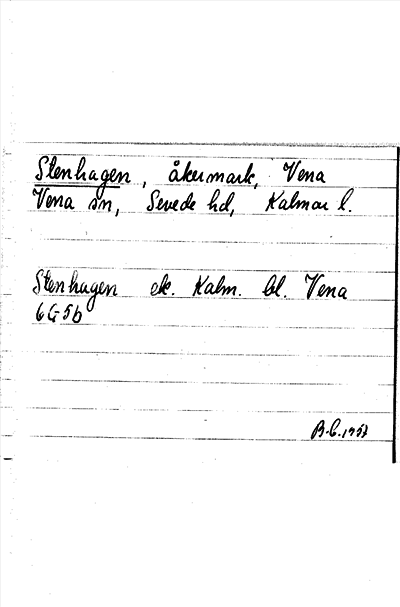 Stenhagen, åkermark, Vena
Vena sn, Sevede hd, Kalmar l.
Stenhagen ek. Kalm. bl. Vena
6G5b
B.C. 1957